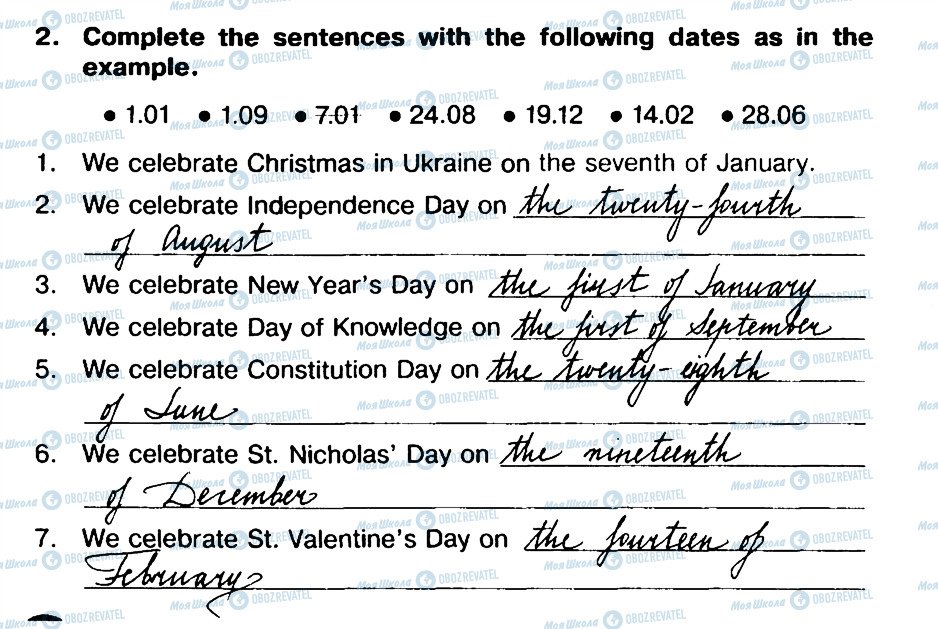 2. Complete the sentences with the following dates as in the
example.
• 1.01 • 1.09 • 7.01 • 24.08 • 19.12 • 14.02 • 28.06
1. We celebrate Christmas in Ukraine on the seventh of January.
2. We celebrate Independence Day on the twenty-fourth
of August
3. We celebrate New Year's Day on the first of January
4. We celebrate Day of Knowledge on the first of September
5. We celebrate Constitution Day on the twenty-eighth
of June
6. We celebrate St. Nicholas' Day on the nineteenth
of December
7. We celebrate St. Valentine's Day on the fourteen of
February
Моя Школа OBOZREVATEL